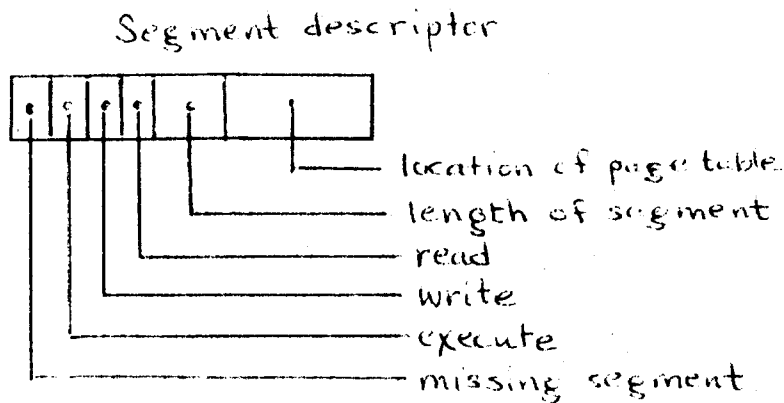 Segment descriptor
location of page table
length of segment
read
write
execute
missing segment